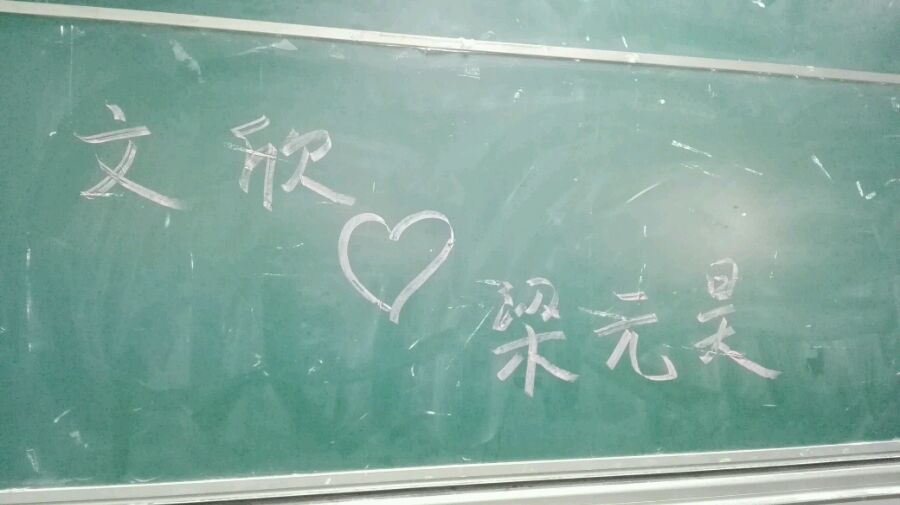 文欣
♡
梁元昊